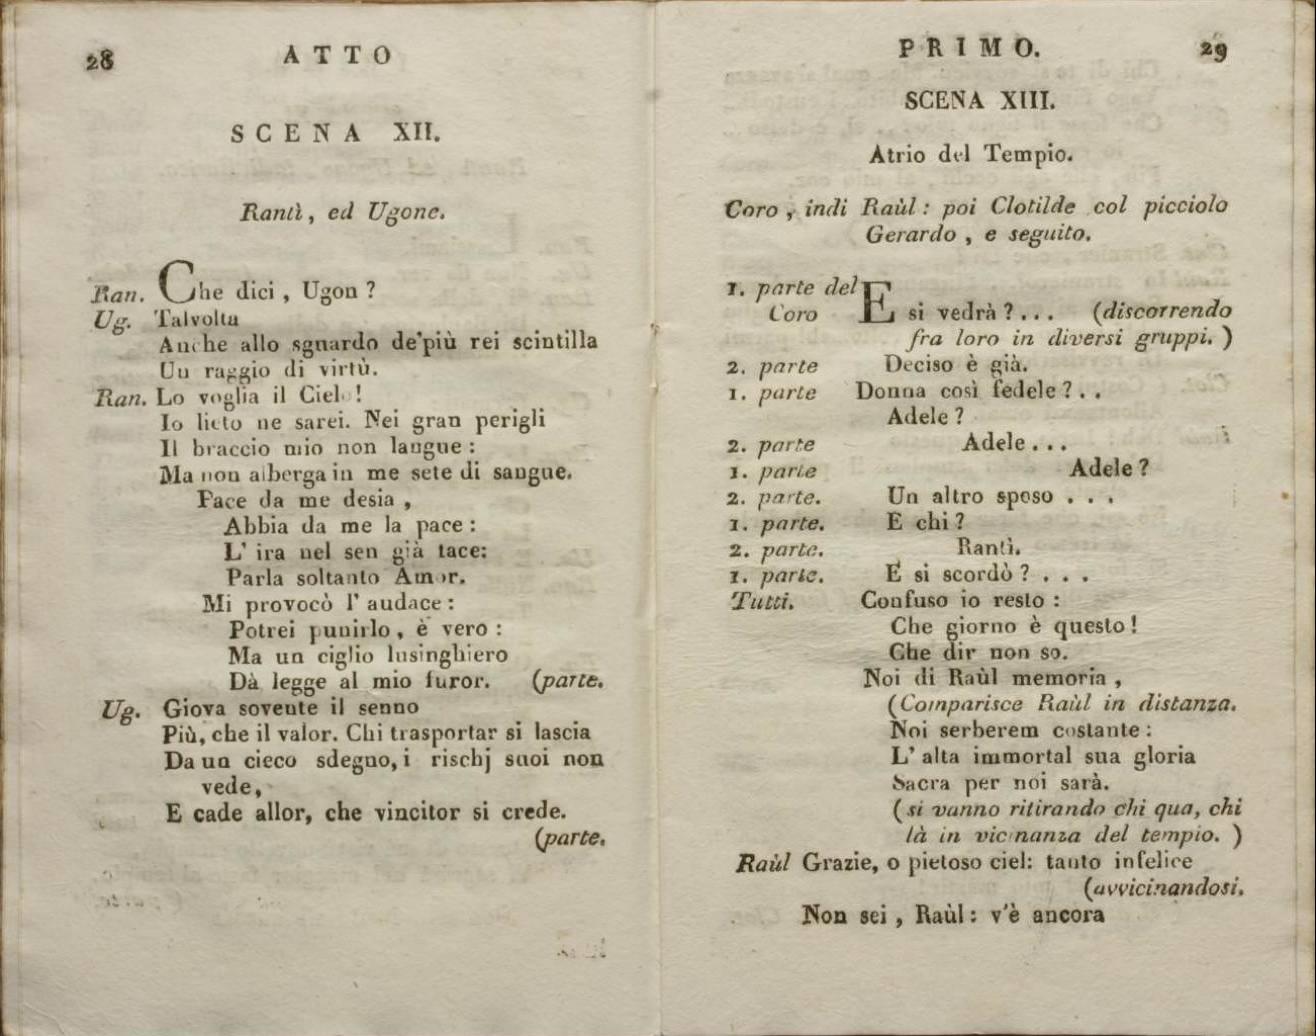 28 ATTO
SCENA XII.
Rantì, ed Ugone.
Ran. Che dici, Ugon?
Ug. Talvolta
Anche allo sguardo de'più rei scintilla
Un raggio di virtù.
Ran. Lo voglia il Cielo!
Io lieto ne sarei. Nei gran perigli
Il braccio mio non langue:
Ma non alberga in me sete di sangue.
Pace da me desia,
Abbia da me la pace:
L' ira nel sen già tace:
Parla soltanto Amor.
Mi provocò l' audace:
Potrei punirlo, è vero:
Ma un ciglio lusinghiero
Dà legge al mio furor. (parte.
Ug. Giova sovente il senno
Più, che il valor. Chi trasportar si lascia
Da un cieco sdegno, i rischj suoi non
vede,
E cade allor, che vincitor si crede.
(parte.
PRIMO. 29
SCENA XIII.
Atrio del Tempio.
Coro, indi Raùl: poi Clotilde col picciolo
Gerardo, e seguito.
1. parte del
Coro E si vedrà?... (discorrendo
fra loro in diversi gruppi.)
2. parte Deciso è già.
1. parte Donna così fedele?..
Adele?
2. parte Adele...
1. parte Adele?
2. parte. Un altro sposo...
1. parte. E chi?
2. parte. Rantì.
1. parte. E si scordò?...
Tutti. Confuso io resto:
Che giorno è questo!
Che dir non so.
Noi di Raùl memoria,
(Comparisce Raùl in distanza.
Noi serberem costante:
L' alta immortal sua gloria
Sacra per noi sarà.
(si vanno ritirando chi qua, chi
là in vicinanza del tempio.)
Raùl Grazie, o pietoso ciel: tanto infelice
(avvicinandosi.
Non sei, Raùl: v'è ancora